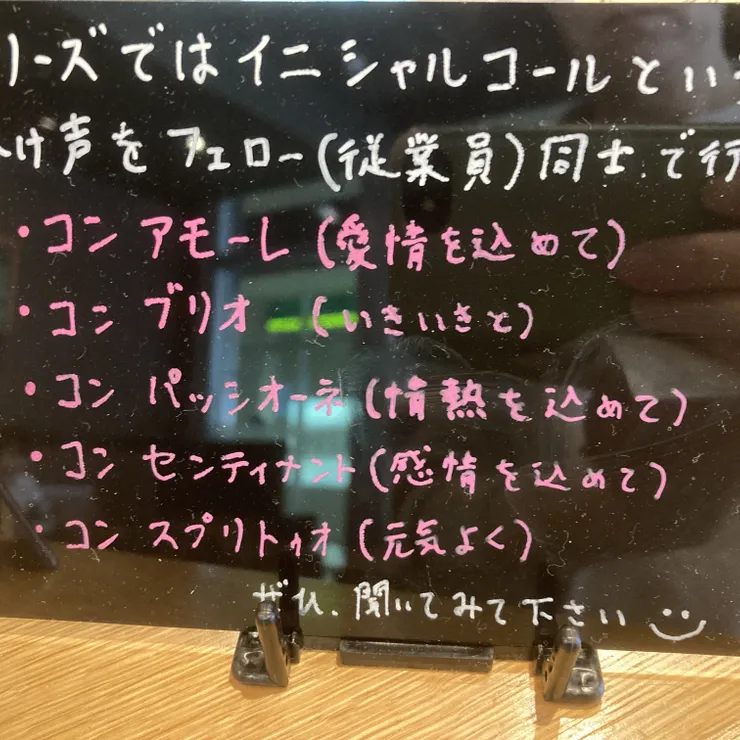 リーズではイニシャルコールとい
け声をフェロー(従業員)同士で行
・コン アモーレ(愛情を込めて)
・コン ブリオ (いきいきと)
・コン パッシオーネ(情熱を込めて)
・コン センティナント(感情を込めて)
・コン スプリトゥオ(元気よく)
ぜひ、聞いてみて下さい